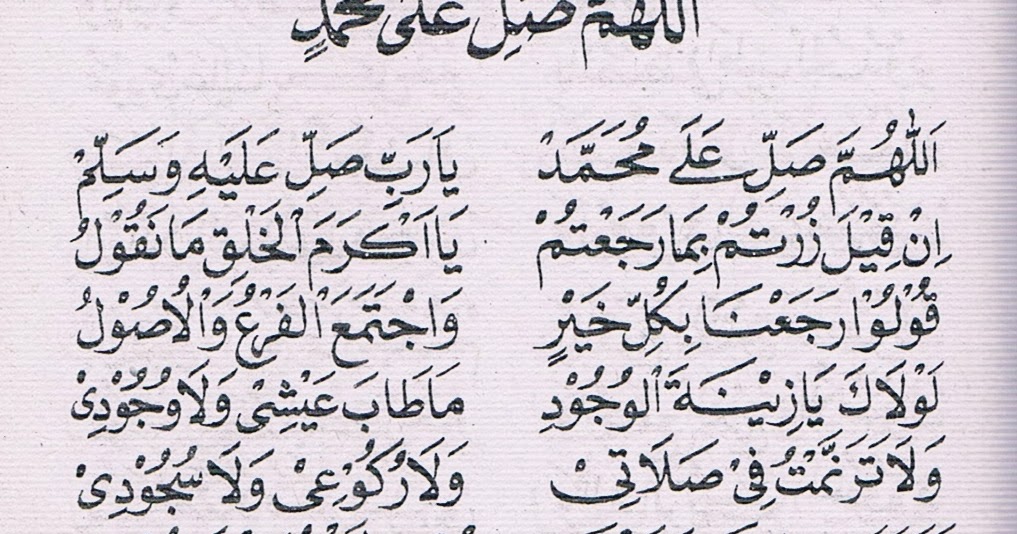 اللهم صل على محمد
اَللّٰهُمَّ صَلِّ عَلَى مُحَمَّدْ يَارَبِّ صَلِّ عَلَيْهِ وَسَلِّمْ
اِنْ قِيْلَ زُرْتُمْ بِمَارَجَعْتُمْ يَااَكْرَمَ الْخَلْقِ مَانَقُوْلُ
قُوْلُوْا رَجَعْنَا بِكُلِّ خَيْرٍ وَاجْتَمَعَ الْفَرْعُ وَالْاُصُوْلُ
لَوْلَاكَ يَازِيْنَةَ الْوُجُوْدِ مَاطَابَ عَيْشِىْ وَلَاوُجُوْدِىْ
وَلَاتَرَنَّمْتُ فِىْ صَلَاتِىْ وَلَارُكُوْعِىْ وَلَاسُجُوْدِىْ